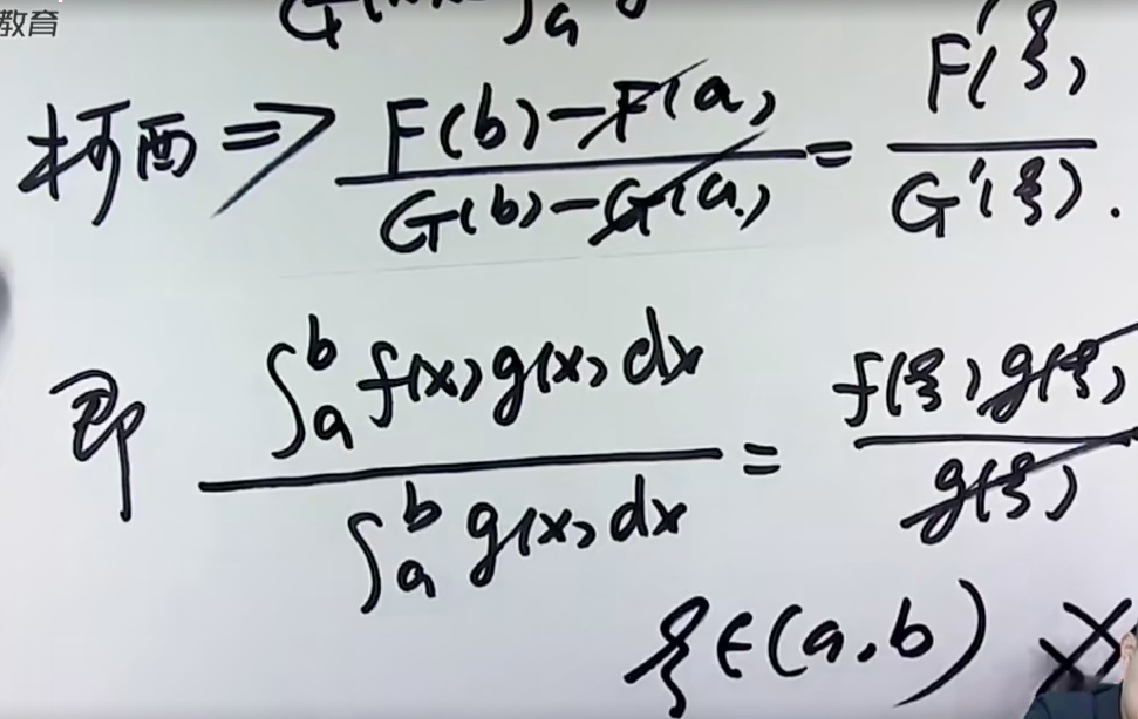 教育
柯西 ⇒ (F(b)-F(a))/(G(b)-G(a)) = F'(ξ)/G'(ξ).
即 ∫_a^b f(x)g(x)dx / ∫_a^b g(x)dx = f(ξ)g(ξ)/g(ξ)
ξ∈(a,b)